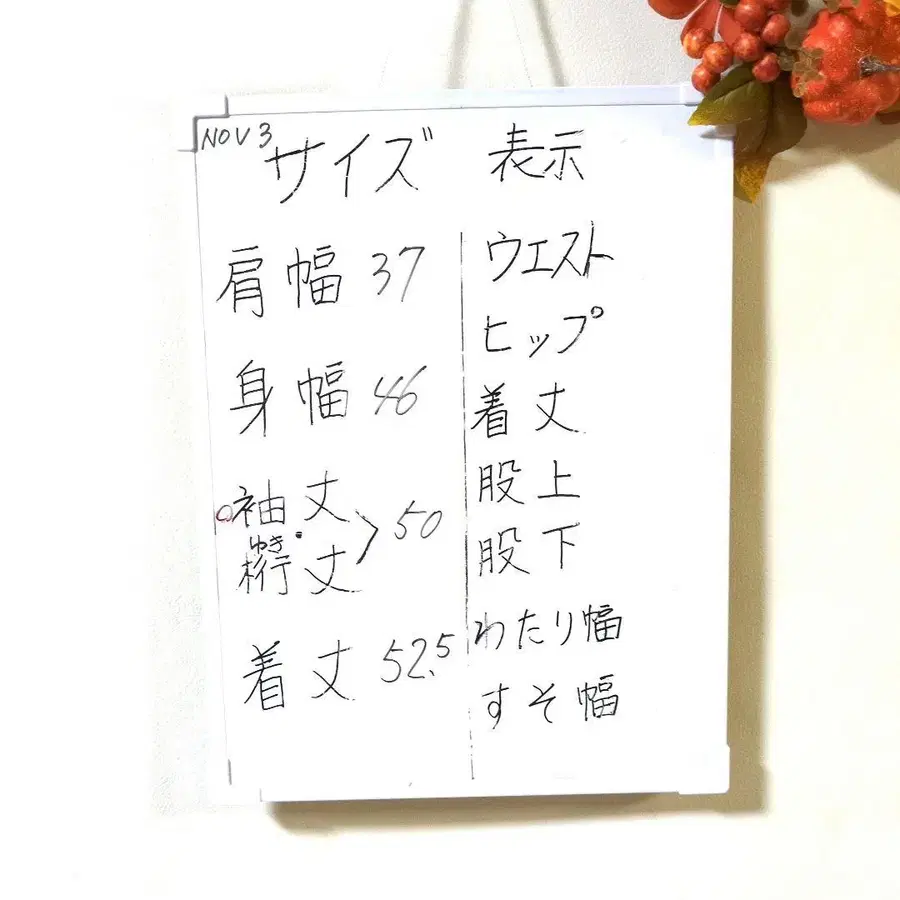 NOV 3
サイズ 表示
肩幅 37
身幅 46
袖丈
ゆき
裄丈
50
着丈 52.5
ウエスト
ヒップ
着丈
股上
股下
わたり幅
すそ幅